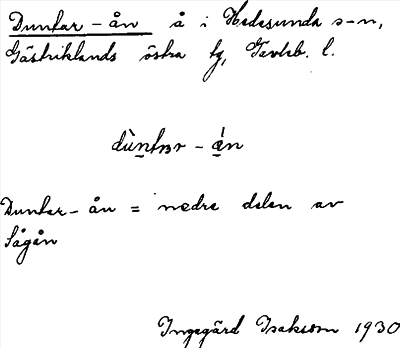 Dunkar-ån å i Hedesunda s-n,
Gästriklands östra tg, Gävleb. l.
Dunkar-ån = nedre delen av
Sågån
Ingegärd Isaksson 1930